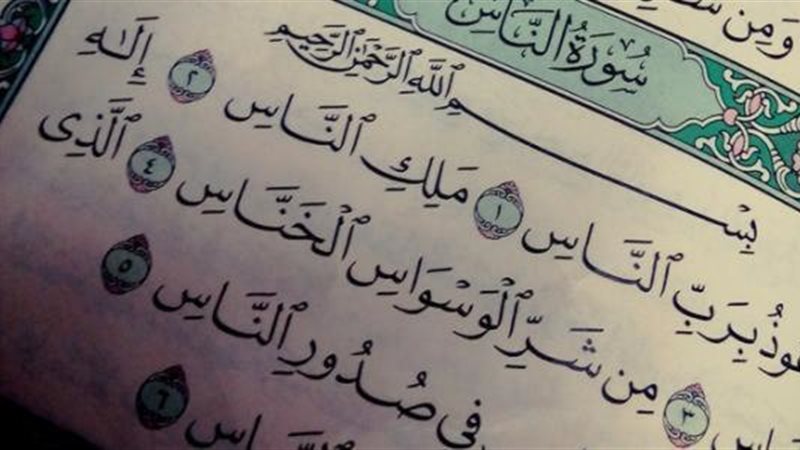 وَمِن
سُورَةُ النَّاسِ
بِسْمِ ٱللَّهِ ٱلرَّحْمَٰنِ ٱلرَّحِيمِ
بِرَبِّ ٱلنَّاسِ ١ مَلِكِ ٱلنَّاسِ ٢ إِلَٰهِ
٣ مِن شَرِّ ٱلْوَسْوَاسِ ٱلْخَنَّاسِ ٤ ٱلَّذِى
فِى صُدُورِ ٱلنَّاسِ ٥
٦